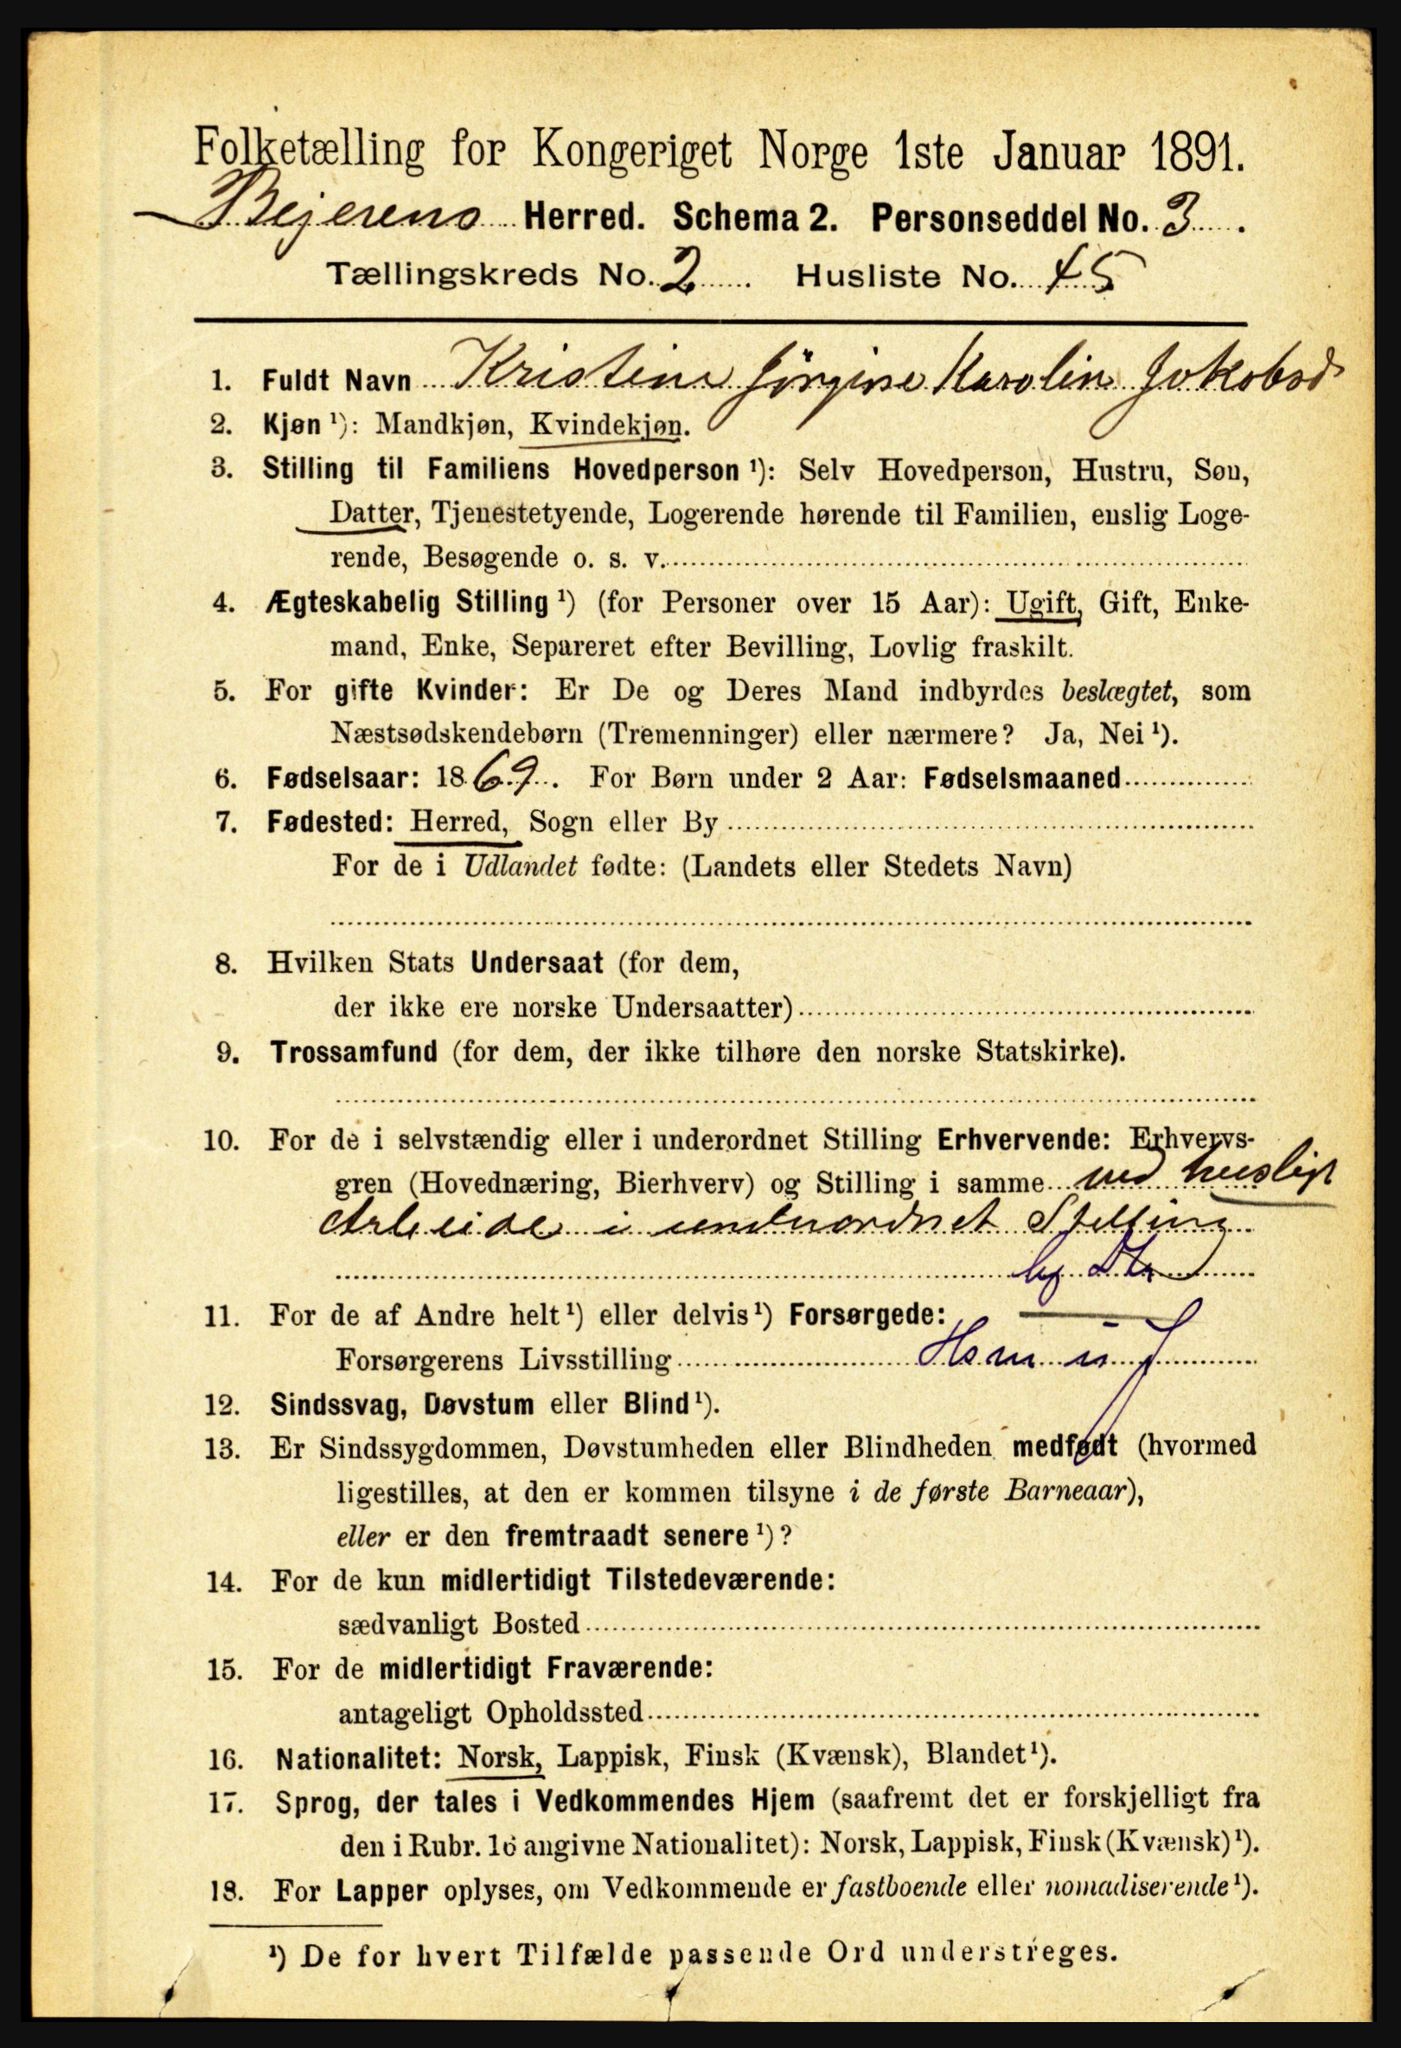 Folketælling for Kongeriget Norge 1ste Januar 1891.
Bejerens Herred. Schema 2. Personseddel No. 3.
Tællingskreds No. 2. Husliste No. 45
1. Fuldt Navn Kristine Jörgine Karolin Jokobsd
2. Kjøn ¹): Mandkjøn, Kvindekjøn.
3. Stilling til Familiens Hovedperson ¹): Selv Hovedperson, Hustru, Søn,
Datter, Tjenestetyende, Logerende hørende til Familien, enslig Loge-
rende, Besøgende o. s. v.
4. Ægteskabelig Stilling ¹) (for Personer over 15 Aar): Ugift, Gift, Enke-
mand, Enke, Separeret efter Bevilling, Lovlig fraskilt.
5. For gifte Kvinder: Er De og Deres Mand indbyrdes beslægtet, som
Næstsødskendebørn (Tremenninger) eller nærmere? Ja, Nei ¹).
6. Fødselsaar: 1869. For Børn under 2 Aar: Fødselsmaaned
7. Fødested: Herred, Sogn eller By
For de i Udlandet fødte: (Landets eller Stedets Navn)
8. Hvilken Stats Undersaat (for dem,
der ikke ere norske Undersaatter)
9. Trossamfund (for dem, der ikke tilhøre den norske Statskirke).
10. For de i selvstændig eller i underordnet Stilling Erhvervende: Erhvervs-
gren (Hovednæring, Bierhverv) og Stilling i samme ved husligt
Arbeide i underordnet Stilling
11. For de af Andre helt ¹) eller delvis ¹) Forsørgede:
Forsørgerens Livsstilling
12. Sindssvag, Døvstum eller Blind ¹).
13. Er Sindssygdommen, Døvstumheden eller Blindheden medfødt (hvormed
ligestilles, at den er kommen tilsyne i de første Barneaar),
eller er den fremtraadt senere ¹)?
14. For de kun midlertidigt Tilstedeværende:
sædvanligt Bosted
15. For de midlertidigt Fraværende:
antageligt Opholdssted
16. Nationalitet: Norsk, Lappisk, Finsk (Kvænsk), Blandet ¹).
17. Sprog, der tales i Vedkommendes Hjem (saafremt det er forskjelligt fra
den i Rubr. 16 angivne Nationalitet): Norsk, Lappisk, Finsk (Kvænsk) ¹).
18. For Lapper oplyses, om Vedkommende er fastboende eller nomadiserende ¹).
¹) De for hvert Tilfælde passende Ord understreges.